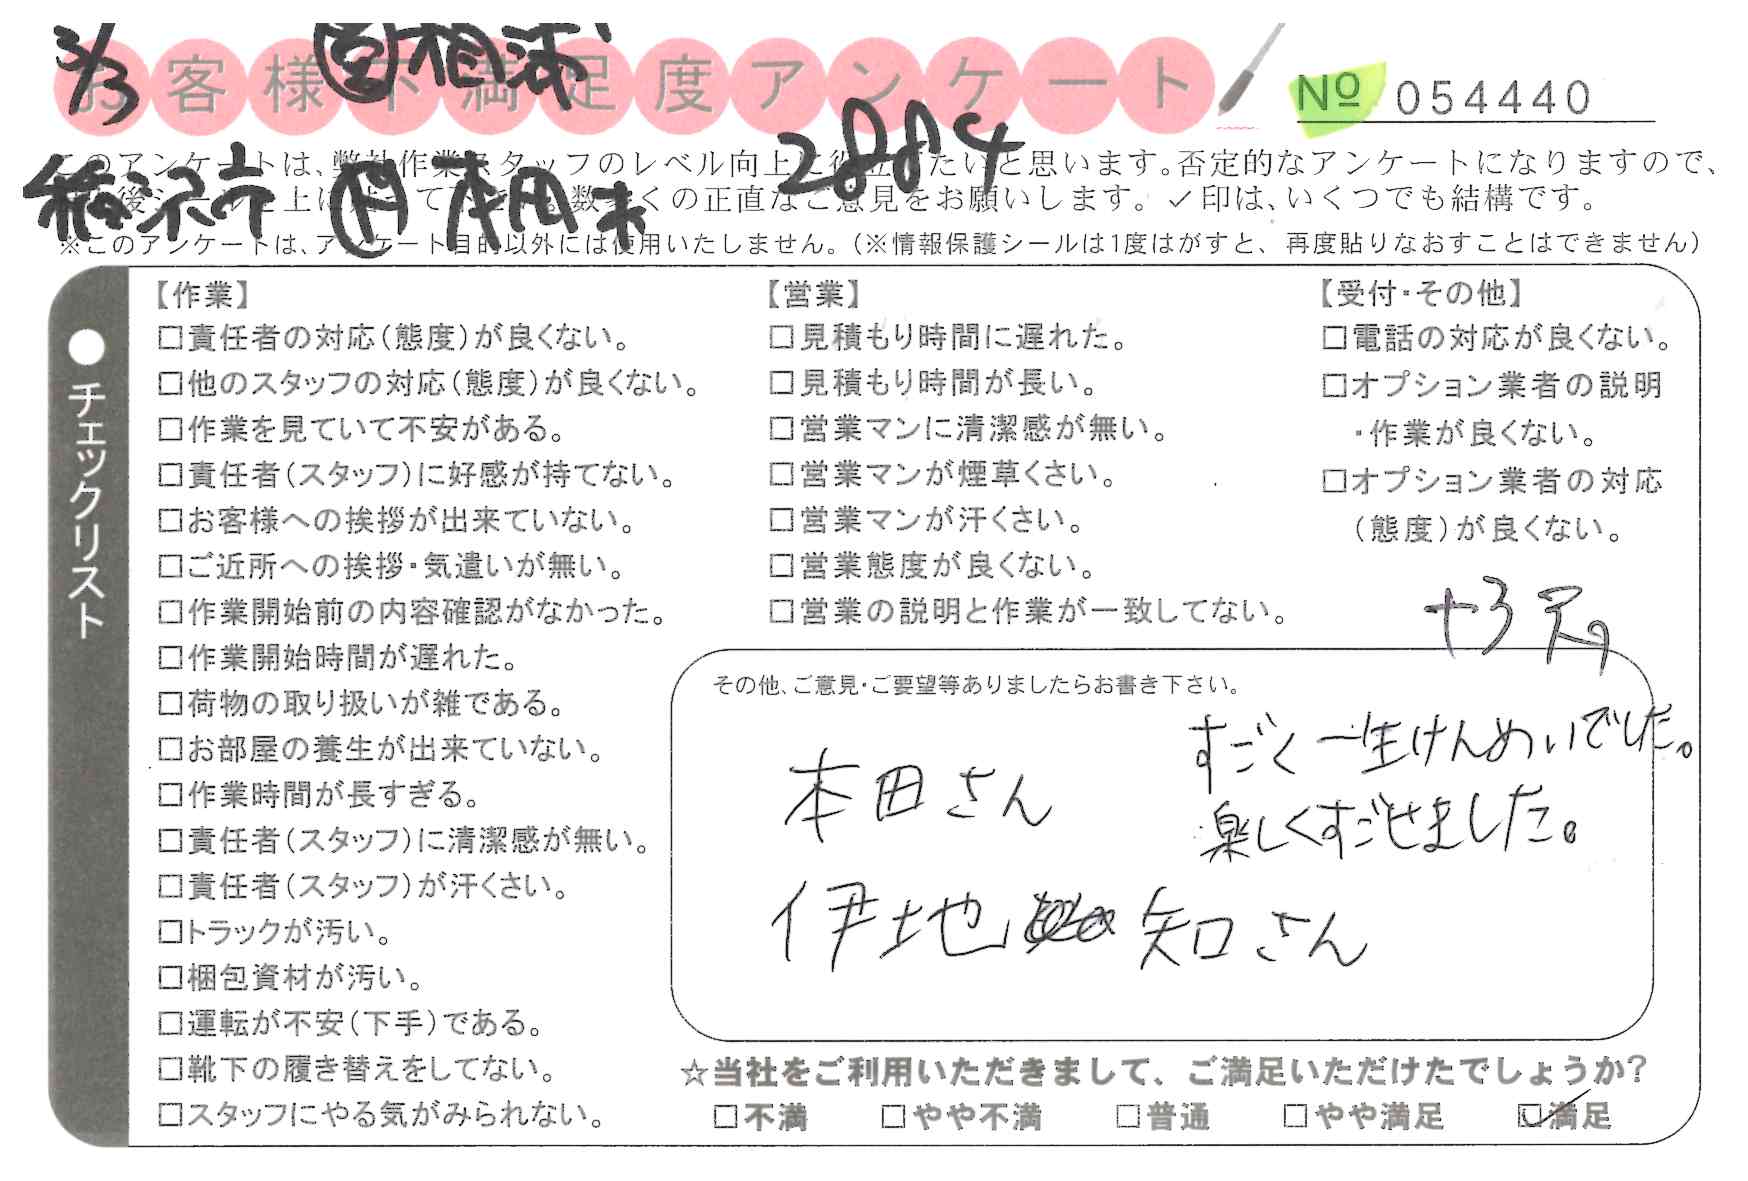 3/3
お客様不満足度アンケート
№ 054440
2884
稲沢市 本田
このアンケートは、弊社作業スタッフのレベル向上に役立てたいと思います。否定的なアンケートになりますので、
くの正直なご意見をお願いします。✓印は、いくつでも結構です。
※このアンケートは、アンケート目的以外には使用いたしません。(※情報保護シールは1度はがすと、再度貼りなおすことはできません)
●チェックリスト
【作業】
□責任者の対応(態度)が良くない。
□他のスタッフの対応(態度)が良くない。
□作業を見ていて不安がある。
□責任者(スタッフ)に好感が持てない。
□お客様への挨拶が出来ていない。
□ご近所への挨拶・気遣いが無い。
□作業開始前の内容確認がなかった。
□作業開始時間が遅れた。
□荷物の取り扱いが雑である。
□お部屋の養生が出来ていない。
□作業時間が長すぎる。
□責任者(スタッフ)に清潔感が無い。
□責任者(スタッフ)が汗くさい。
□トラックが汚い。
□梱包資材が汚い。
□運転が不安(下手)である。
□靴下の履き替えをしてない。
□スタッフにやる気がみられない。
【営業】
□見積もり時間に遅れた。
□見積もり時間が長い。
□営業マンに清潔感が無い。
□営業マンが煙草くさい。
□営業マンが汗くさい。
□営業態度が良くない。
□営業の説明と作業が一致してない。
【受付・その他】
□電話の対応が良くない。
□オプション業者の説明
・作業が良くない。
□オプション業者の対応
(態度)が良くない。
その他、ご意見・ご要望等ありましたらお書き下さい。
すごく一生けんめいでした。
本田さん
楽しくすごせました。
伊地知さん
☆当社をご利用いただきまして、ご満足いただけたでしょうか?
□不満 □やや不満 □普通 □やや満足 ☑満足